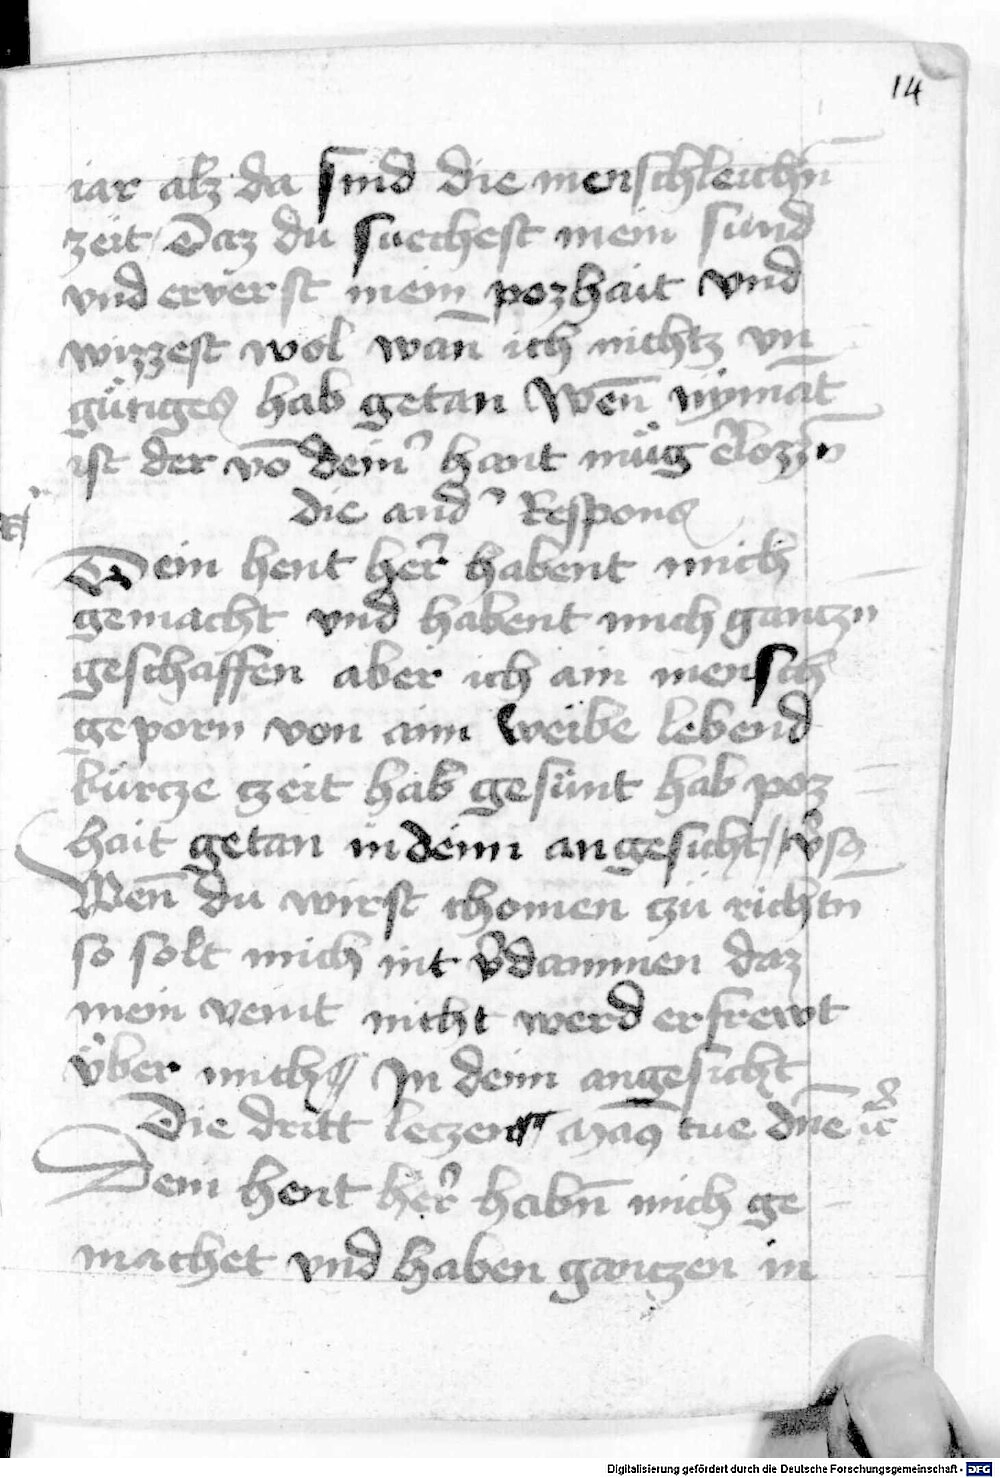 14
iar alz da sind die menschleichn̄
zeit Daz du suechest mein sund
vnd erverst mein pozhait vnd
wizzest wol wan̄ ich nichtz vn
gütiges hab getan Wen̄ nymāt
ist der vō dein̓ hant müg ̓lozzn̄
die and̓ Respons
Dein hent her̓ habent mich
gemacht vnd habent mich gantzn
geschaffen aber ich ain mensch
geporn von aim weibe lebend
kürcze czeit hab gesünt hab poz
hait getan in deinn angesicht
Wen̄ du wirst chomen czü richtn
so solt mich nit v̓dammen daz
mein veint nicht werd erfrewt
vber mich In deinn angesicht
Die dritt leczen Man⁹ tue dn̄e
Dein hent her̓ habn̄ mich ge
machet vnd haben gantzen in
Digitalisierung gefördert durch die Deutsche Forschungsgemeinschaft - DFG